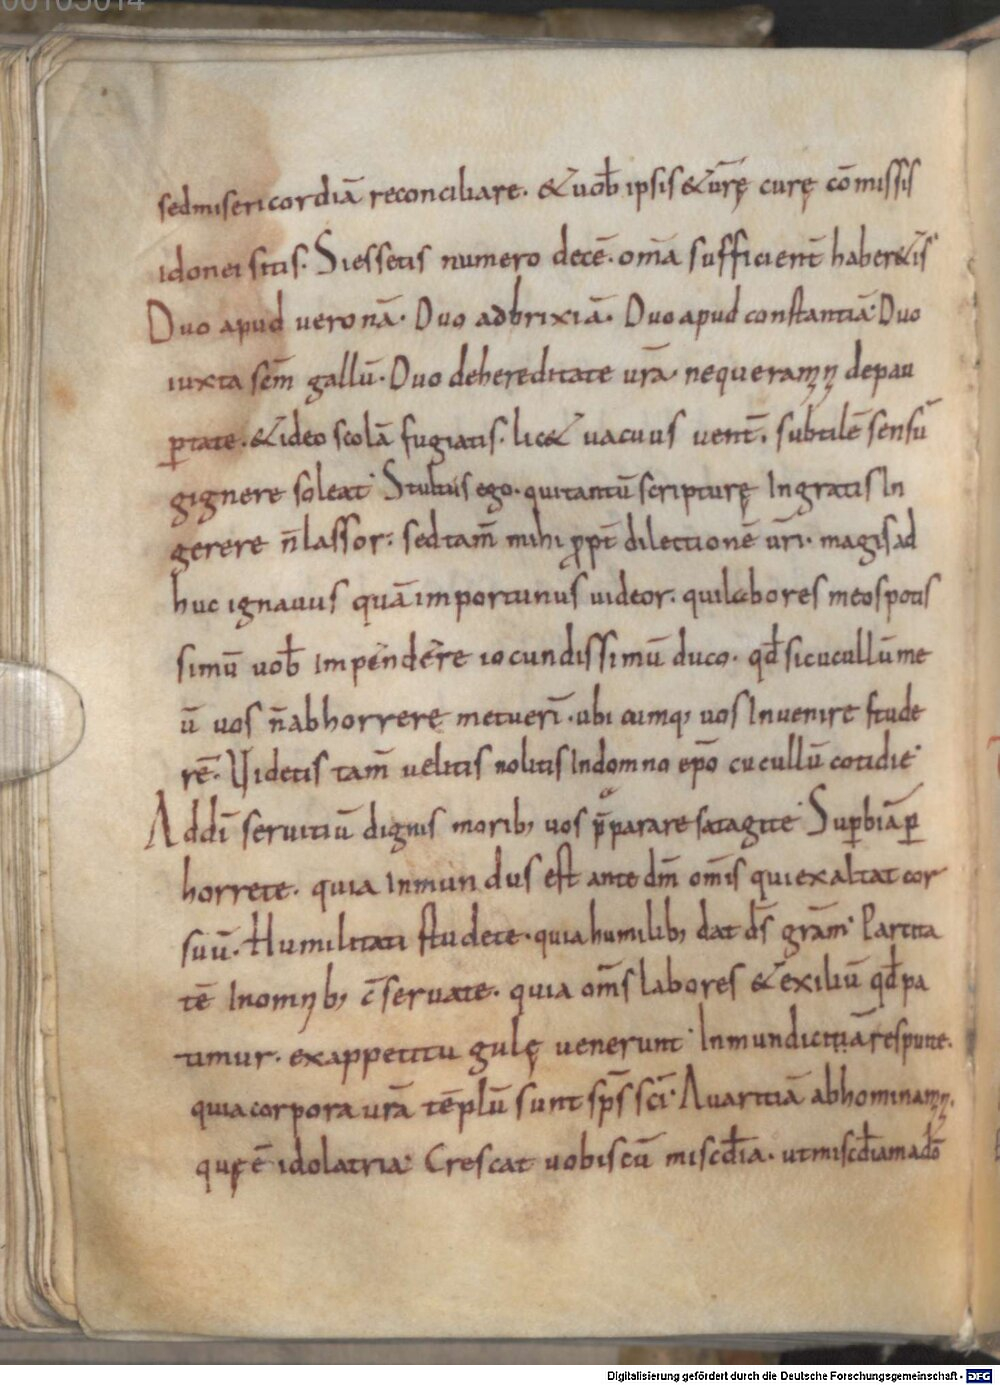 00105014
sedmisericordiā reconciliare. & uob̄ ipsis & ur̄ę curę cōmissis
idonei sitis. Siessetis numero decē. om̄a sufficient̄ haber&is
Duo apud ueronā. Duo adbrixiā. Duo apud constantiā. Duo
iuxta sēm gallū. Duo dehereditate ur̄a. nequeramꝫ depau
ꝑtate. & ideo scolā fugiatis. lic& uacuus uent̄. subtilē sensū
gignere soleat. Stultus ego. quitantū scripturę Ingratis In
gerere n̄ lassor. sedtam̄ mihi ꝓpt̄ dilectionē ur̄i. magis ad
huc ignauus quā importunus uideor. quilabores meos potis
simū uob̄ Impendere iocundissimū duco. qđ sicucullū me
ū uos n̄ abhorrere metuerī. ubi cumq; uos Inuenire stude
rē. Videtis tam̄ uelitis nolitis Indomno ep̄o cucullū cotidie
Addī seruitiū dignis morib; uos p̄parare satagite. Suꝑbiā ꝑ
horrete. quia Inmundus est ante dm̄ om̄is quiexaltat cor
suū. Humilitati studete. quia humilib; dat ds̄ gram̄. Parcita
tē Inomnib; c̄seruate. quia om̄s labores & exiliū qđ pa
timur. exappetitu gulę uenerunt. Inmundiciiā respuite.
quia corpora ur̄a tēplū sunt sps̄ sc̄i. Auaritiā abhominamꝫ.
quę ē idolatria. Crescat uobiscū miscđia. ut miscđiam a dō
Digitalisierung gefördert durch die Deutsche Forschungsgemeinschaft - DFG